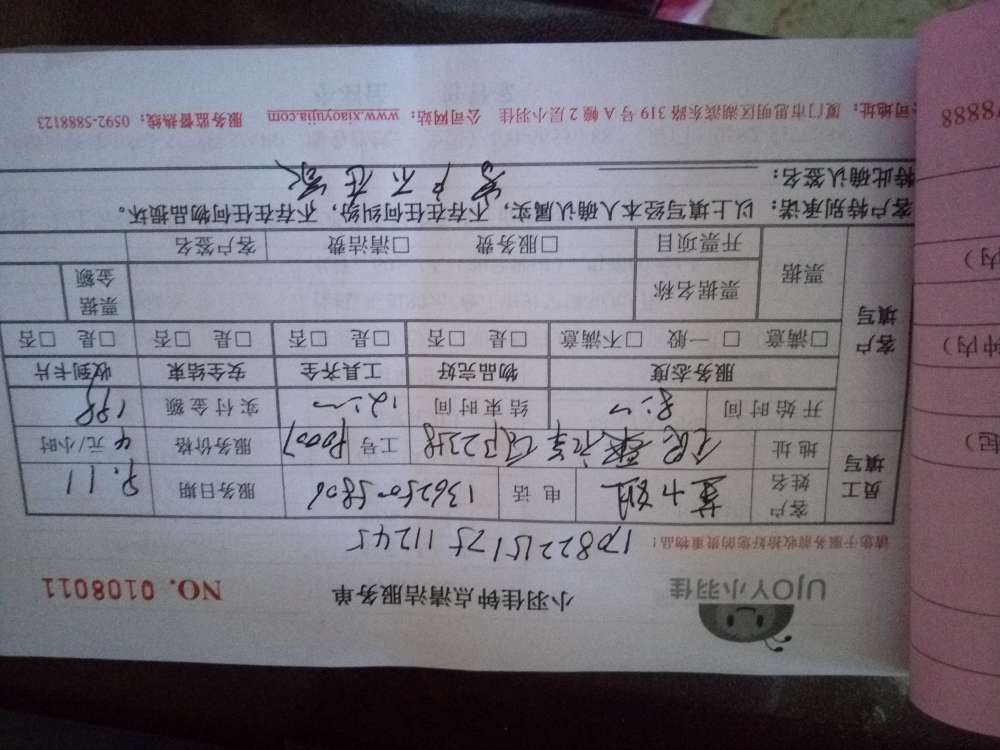 UJOY小羽佳 小羽佳钟点清洁服务单 NO. 0108011
请您于服务前收拾好您的贵重物品!
员工填写 客户姓名 电话 服务日期 9.11
地址 工号 服务价格 4 元/小时
开始时间 8: 结束时间 12: 实付金额 198
客户填写 服务态度 物品完好 工具齐全 安全结束 收到卡片
□满意 □一般 □不满意 □是 □否 □是 □否 □是 □否 □是 □否
票据 票据名称 票据金额
开票项目 □服务费 □清洁费 客户签名
客户特别承诺:以上填写经本人确认属实,不存在任何纠纷,不存在任何物品损坏。
特此确认签名: 客户不在家
公司地址:厦门市思明区湖滨东路319号A幢2层小羽佳 公司网站:www.xiaoyujia.com 服务监督热线:0592-5888123